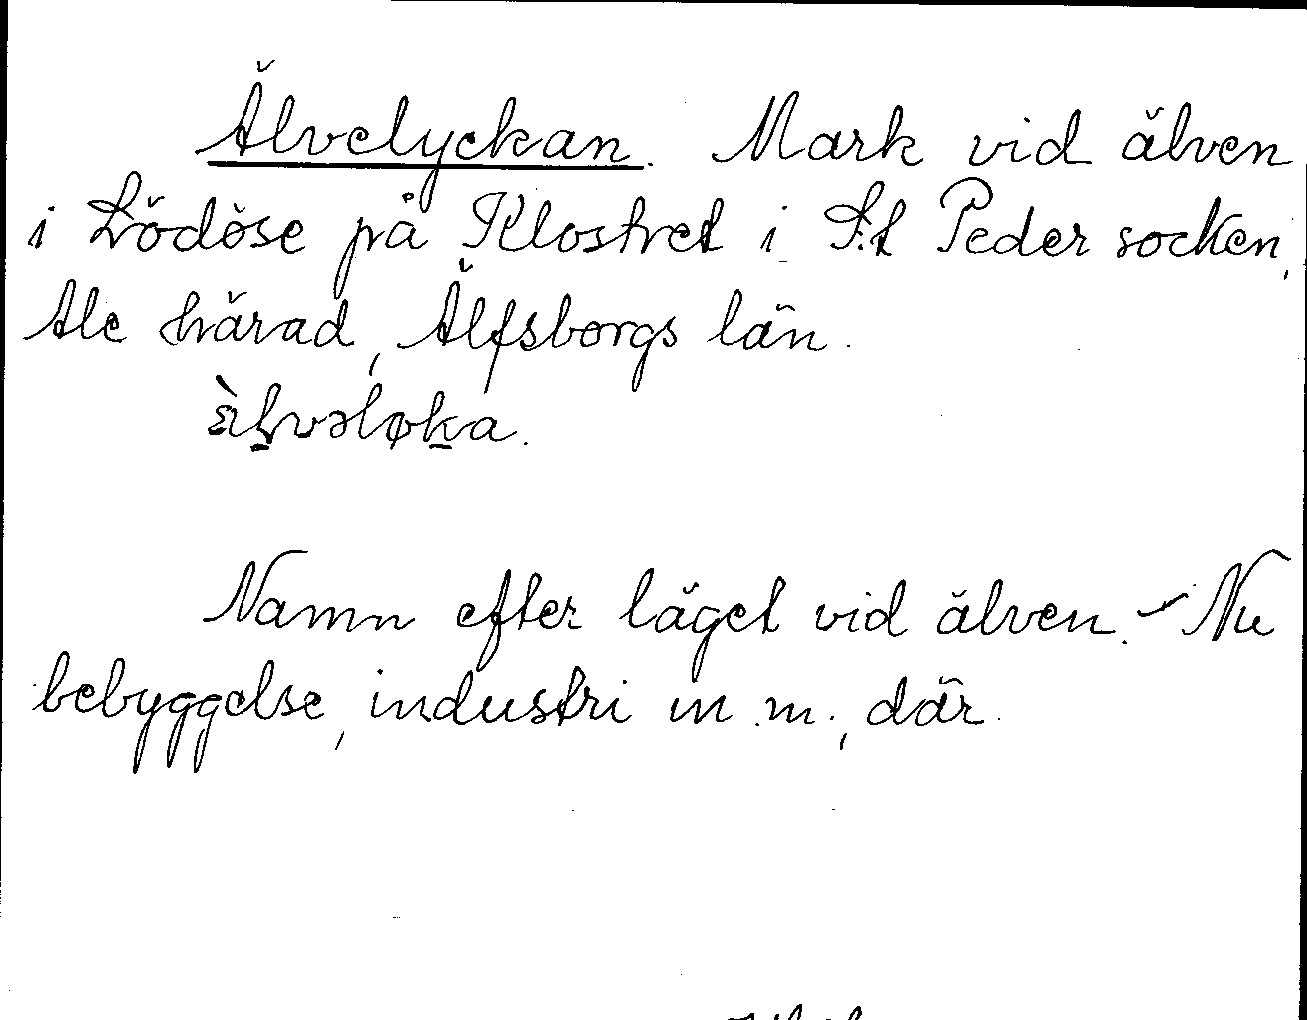 Älvelyckan. Mark vid älven
i Lödöse på Klostret i S:t Peder socken,
Ale härad, Älfsborgs län.
Namn efter läget vid älven. – Nu
bebyggelse, industri m.m., där.